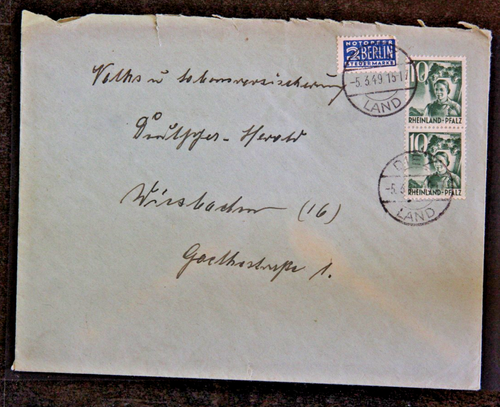 NOTOPFER
2 BERLIN
STEUERMARKE
-5.3.49 15-17
LAND
10
RHEINLAND-PFALZ
10
RHEINLAND-PFALZ
-5.3
LAND
Volks u Lebensversicherung
Deutscher-Herold
Wiesbaden (16)
Goethestraße 1.